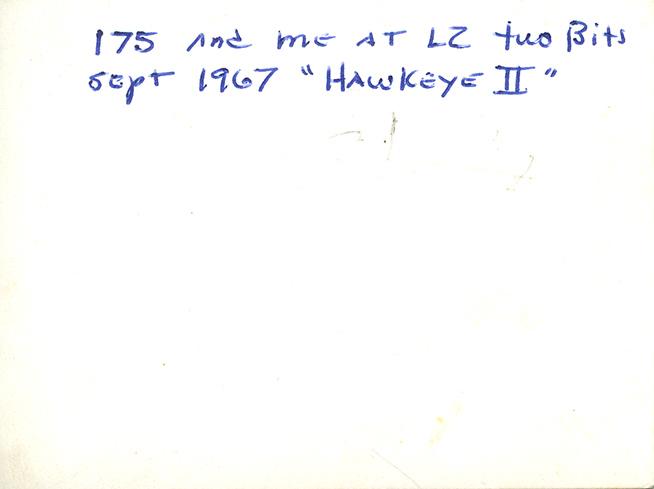 175 And ME AT LZ two Bits
SEpt 1967 "HAWKEYE II"